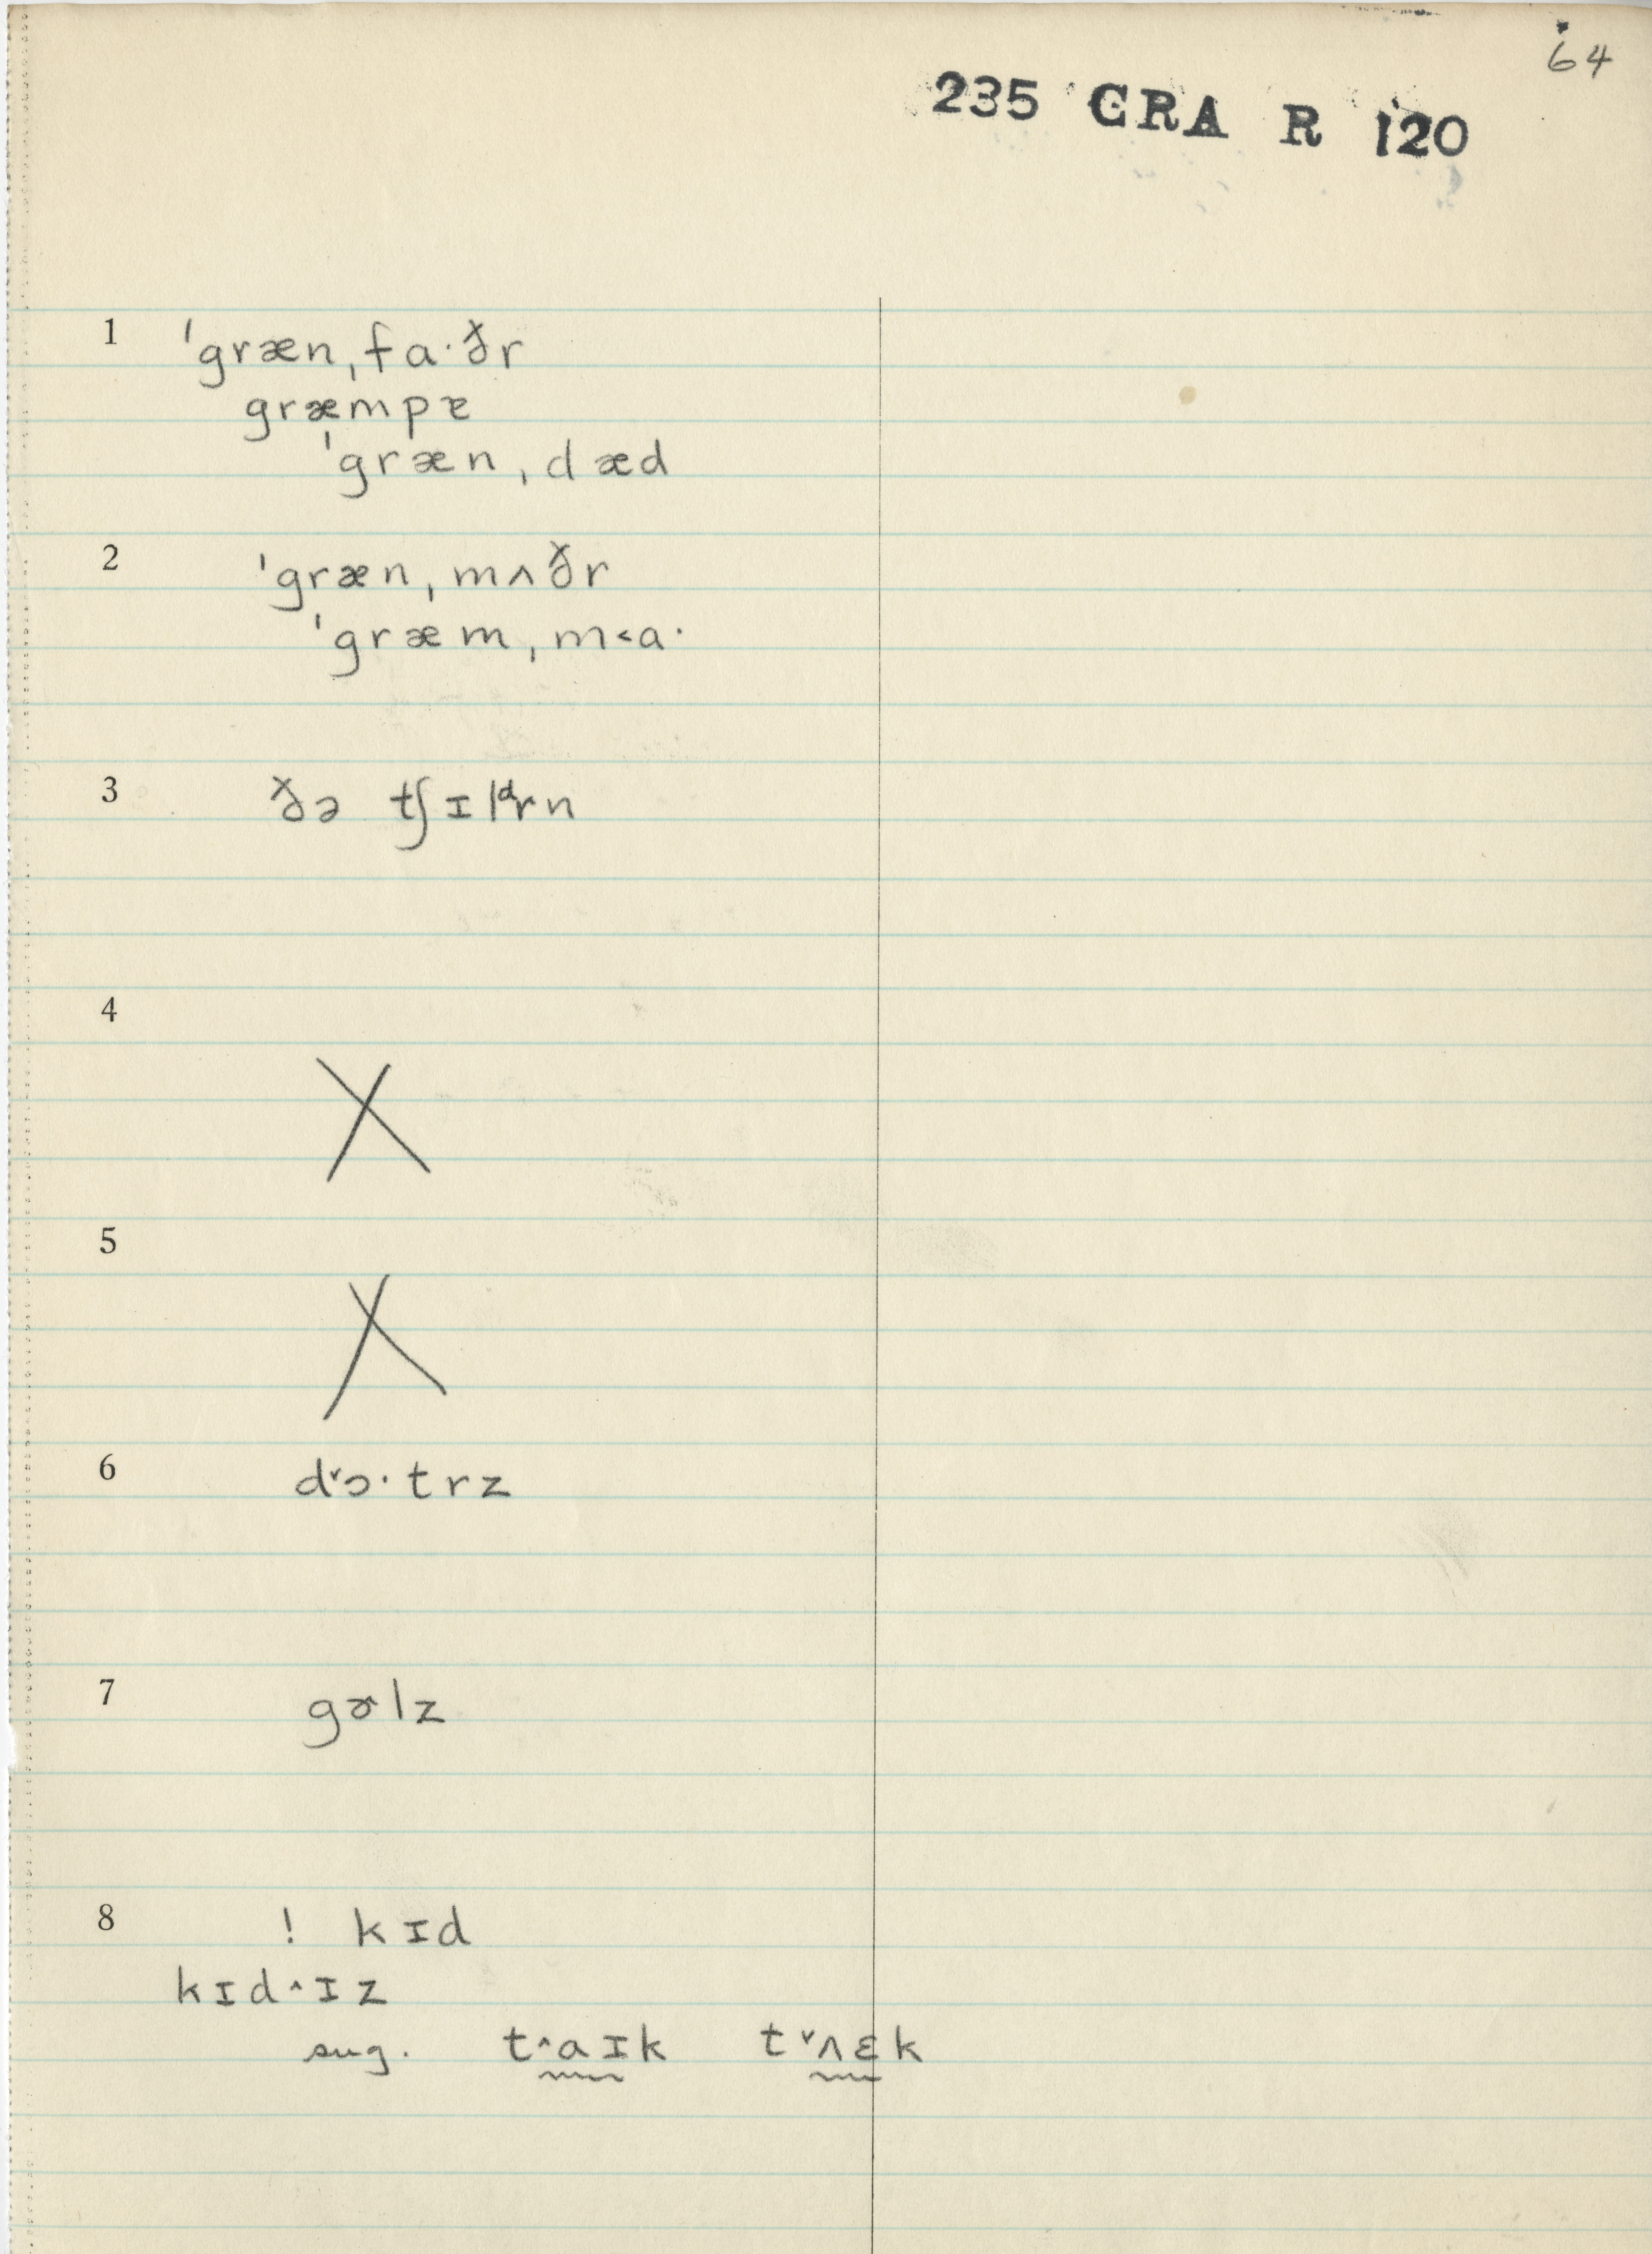 64
235 GRA R 120
1 ˈgræn,fa·ðr
græmpɐ
ˈgræn,dæd
2 ˈgræn,mʌðr
ˈgræm,m˂a·
3 ðə tʃɪlᵈrn
4 X
5 X
6 d˅ɔ·trz
7 gɚlz
8 ! kɪd
kɪd˄ɪz
sug. t˄aɪk t˅ʌɛk